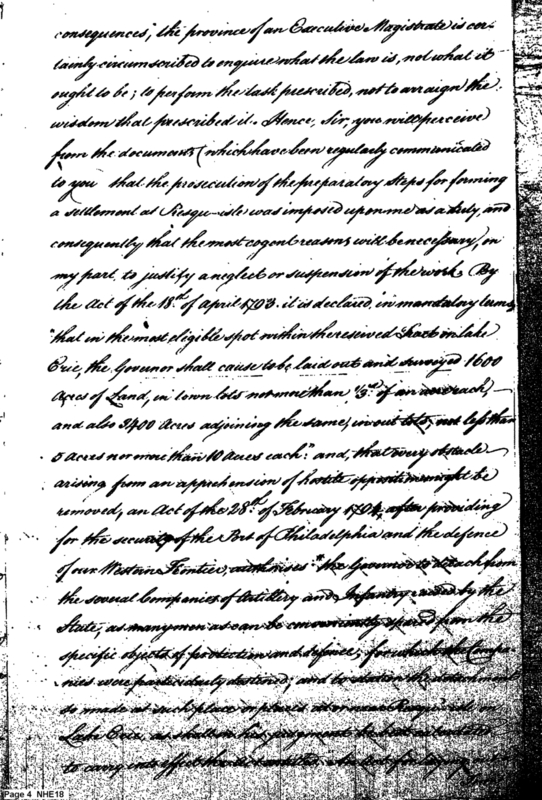 consequences", the province of an Executive Magistrate is cer-
tainly circumscribed to enquire what the law is, not what it
ought to be; to perform the task prescribed, not to arraign the
wisdom that prescribed it. Hence, Sir, you will perceive
from the documents (which have been regularly communicated
to you that the prosecution of the preparatory steps for forming
a settlement at Presqu-isle was imposed upon me as a duty, and
consequently that the most cogent reasons will be necessary, on
my part, to justify a neglect or suspension of the work. By
the Act of the 18th of April 1793. it is declared, in mandatory terms,
"that in the most eligible spot within the reserved Tract on lake
Erie, the Governor shall cause to be laid out and surveyed 1600
Acres of Land, in town lots not more than 1/3rd of an acre each,
and also 3400 Acres adjoining the same, in out lots, not less than
5 Acres nor more than 10 Acres each": and, that every obstacle
arising from an apprehension of hostile opposition might be
removed, an Act of the 28th of February 1794, after providing
for the security of the Port of Philadelphia and the defence
of our Western Frontier, authorises "the Governor to detach from
the several Companies of Artillery and Infantry raised by the
State, as many men as can be conveniently spared from the
specific objects of protection and defence, for which the Compa-
nies were particularly destined; and to station the detachment
so made at such place or places, at or near Presqu'isle, on
Lake Erie, as shall in his judgment be best calculated
to carry into effect the Act entitled An Act for laying
Page 4 NHE18